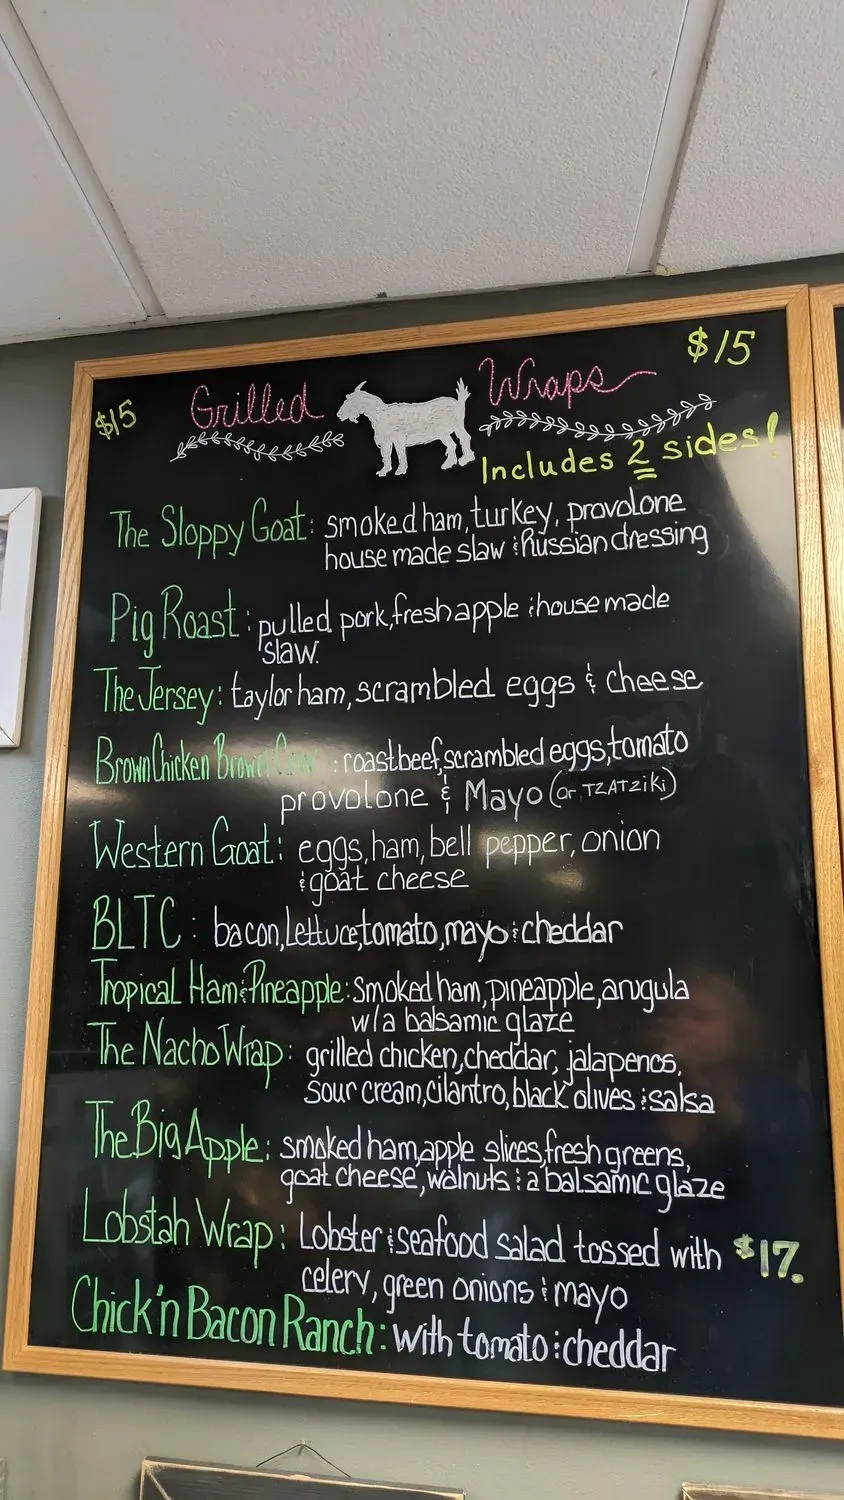 $15
$15
Grilled Wraps
Includes 2 sides!
The Sloppy Goat: smoked ham, turkey, provolone
house made slaw & Russian dressing
Pig Roast: pulled pork, fresh apple & house made
slaw.
The Jersey: taylor ham, scrambled eggs & cheese
Brown Chicken Brown Cow: roast beef, scrambled eggs, tomato
provolone & Mayo (or TZATZiki)
Western Goat: eggs, ham, bell pepper, onion
& goat cheese
BLTC: bacon, lettuce, tomato, mayo & cheddar
Tropical Ham & Pineapple: Smoked ham, pineapple, arugula
w/a balsamic glaze
The Nacho Wrap: grilled chicken, cheddar, jalapenos,
sour cream, cilantro, black olives & salsa
The Big Apple: smoked ham, apple slices, fresh greens,
goat cheese, walnuts & a balsamic glaze
Lobstah Wrap: Lobster & seafood salad tossed with $17.
celery, green onions & mayo
Chick'n Bacon Ranch: with tomato & cheddar